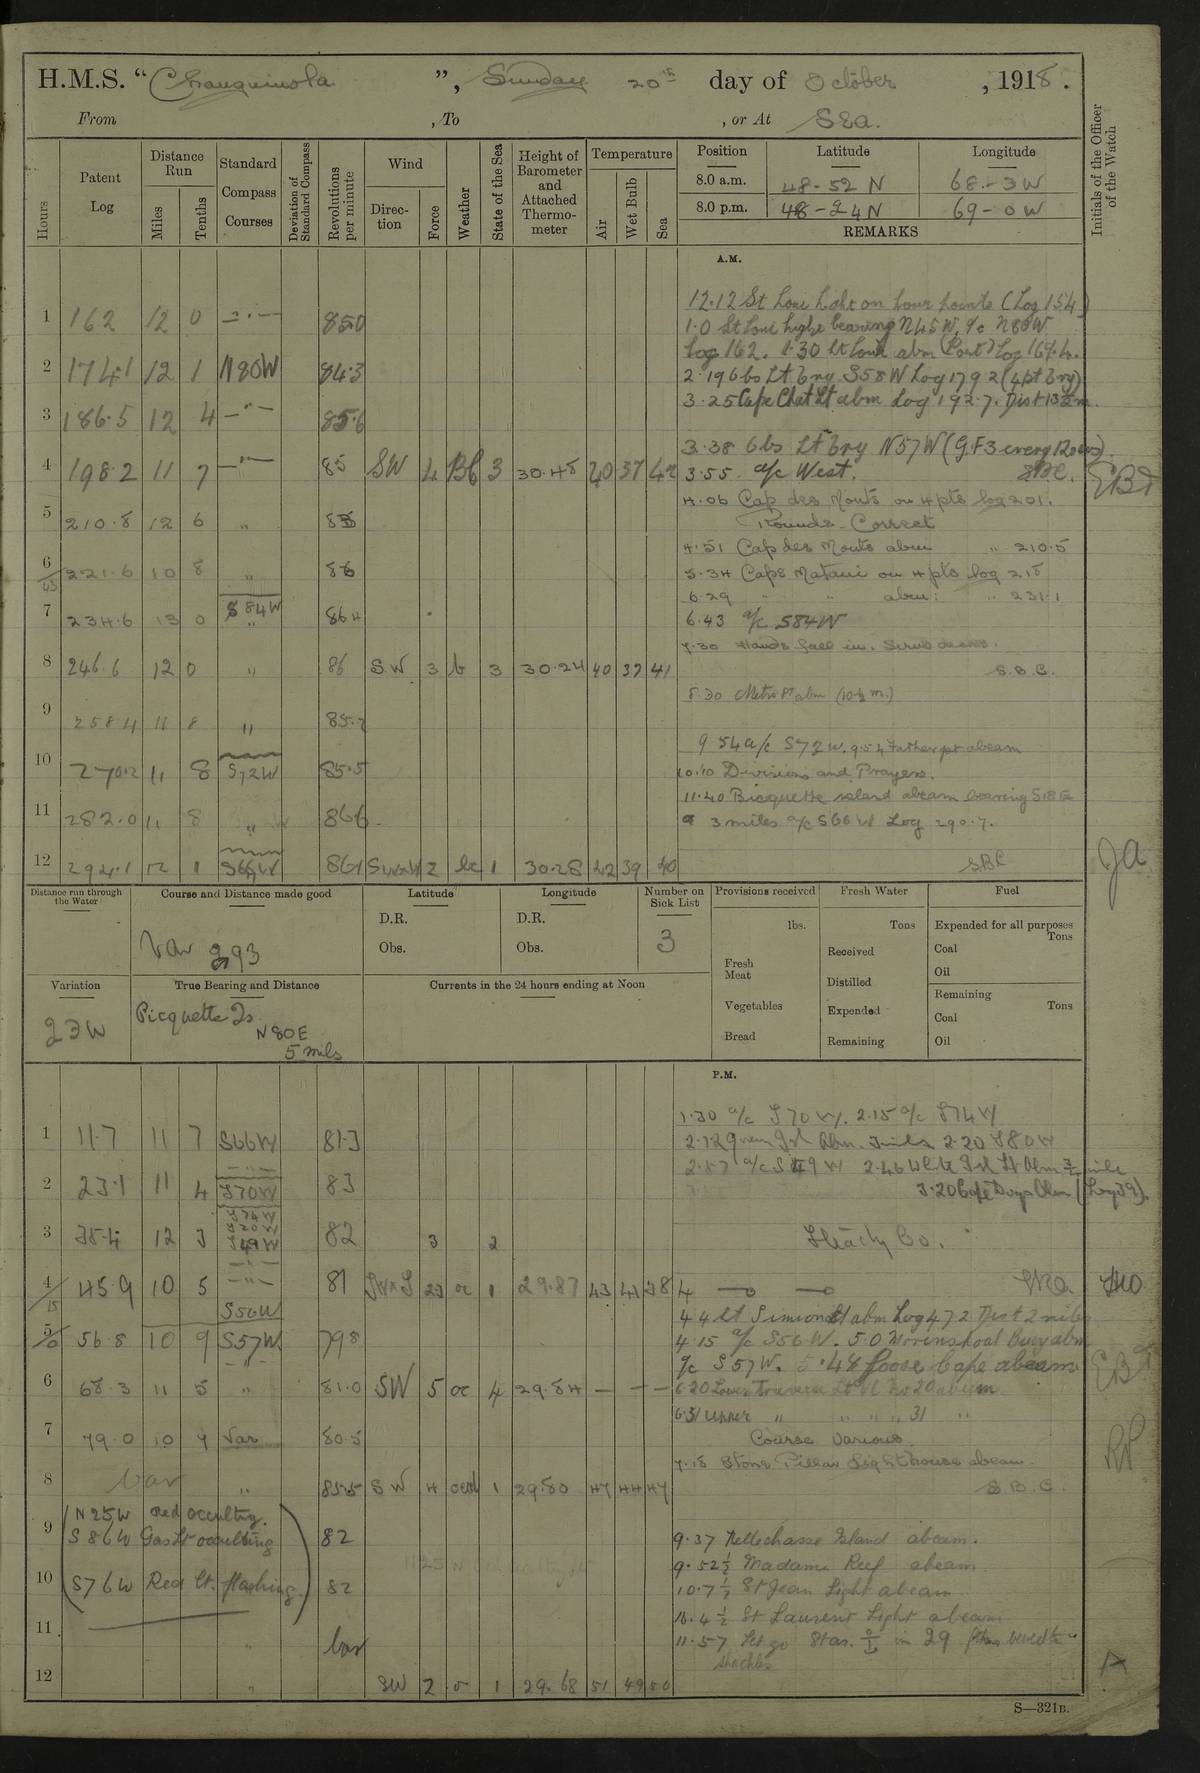 H.M.S. "Changuinola", Sunday 20th day of October, 1918.
From , To , or At Sea.
Hours
Patent Log
Distance Run
Miles
Tenths
Standard Compass Courses
Deviation of Standard Compass
Revolutions per minute
Wind
Direction
Force
Weather
State of the Sea
Height of Barometer and Attached Thermometer
Temperature
Air
Wet Bulb
Sea
Position Latitude Longitude
8.0 a.m. 48-52 N 68-3 W
8.0 p.m. 48-24 N 69-0 W
REMARKS
Initials of the Officer of the Watch
A.M.
12.12 St Loui light on four points (Log 154)
1 162 12 0 850
1.0 St Loui light bearing N45W, a/c N80W
Log 162. 1.30 abm (Port) Log
2 174.1 12 1 N80W 84.3
2.19 Obs Lt brg S58W Log 179 2 (4pt brg)
3.25 Cape Chat Lt abm Log 192.7. Dist
3 186.5 12 4 85.6
3.38 Obs Lt brg N57W
4 198.2 11 7 85 SW 4 BC 3 30.48 40 37 42 3.55. a/c West.
4.06 Cap des Monts on 4 pts log 201.
5 210.8 12 6 " 85 Rounds Correct
4.51 Cap des Monts abm " 210.5
6/43 221.6 10 8 " 86 5.34 Cape Matani on 4 pts log 218
6.29 " " abm: " 231.1
7 234.6 13 0 S84W 864 6.43 a/c S84W
7.30 Hands fall in. Scrub decks.
8 246.6 12 0 " 86 S.W 3 b 3 30.24 40 37 41 S.B.C.
8.30 Metis Pt abm (10½ m.)
9 258.4 11 8 " 85.7
9 54 a/c S72W. 9.54 Father pt abeam
10 270.2 11 8 S72W 85.5 10.10 Divisions and Prayers.
11.40 Bicquette island abeam bearing S18E
11 282.0 11 8 " 866 3 miles a/c S66W Log 290.7.
12 294.1 12 1 S66W 861 2 bc 1 30.28 42 39 40 SBC JA
Distance run through the Water
Course and Distance made good
Latitude
Longitude
Number on Sick List
Provisions received
Fresh Water
Fuel
D.R. D.R.
Obs. Obs.
3
Var 293
lbs. Tons
Expended for all purposes Tons
Fresh Meat
Received
Coal
Oil
Variation
True Bearing and Distance
Currents in the 24 hours ending at Noon
Distilled
Remaining Tons
Vegetables
Expended
Coal
Bread
Remaining
Oil
23W
Picquette Is.
N80E
5 mils
P.M.
1.30 a/c S70W. 2.15 a/c S74W
1 11.7 11 7 S66W 81.3
2.20 S80W
2.57 a/c S49W 2.46 White Isl Lt Abm
2 23.1 11 4 S70W 83
3 35.4 12 3 S74W S80W S49W 82 3 2 Steady Co.
4/15 45.9 10 5 81 oc 1 29.87 43 41 38
S56W
4 4 Lt Simions Lt abm Log 47 2 Dist 2 miles
5/0 56.8 10 9 S57W 798 4.15 a/c S56W. 5.0 Morin shoal Buoy abm
a/c S57W. 5.48 Goose Cape abeam
6 68.3 11 5 " 81.0 SW 5 oc 4 29.84 — — — 6.20 Lower Traverse Lt Vl No 20 abeam
6.31 Upper " " " " 31 "
7 79.0 10 7 Var 80.5 Course Various
7.18 Stone Pillar Lighthouse abeam
8 Var " 83.5 SW 4 1 29.80 47 44 47 S.B.C.
N25W Red occulting.
9 S86W Gas Lt occulting 82 9.37 Bellechasse Island abeam.
9.52½ Madame Reef abeam
10 S76W Red Lt. flashing. 82 10.7½ St Jean Light abeam
St Laurent Light abeam
11 " Var 11.57 Let go Star. in 29 fthms
shackles
12 " SW 2 o 1 29.68 51 49 50
S—321B.